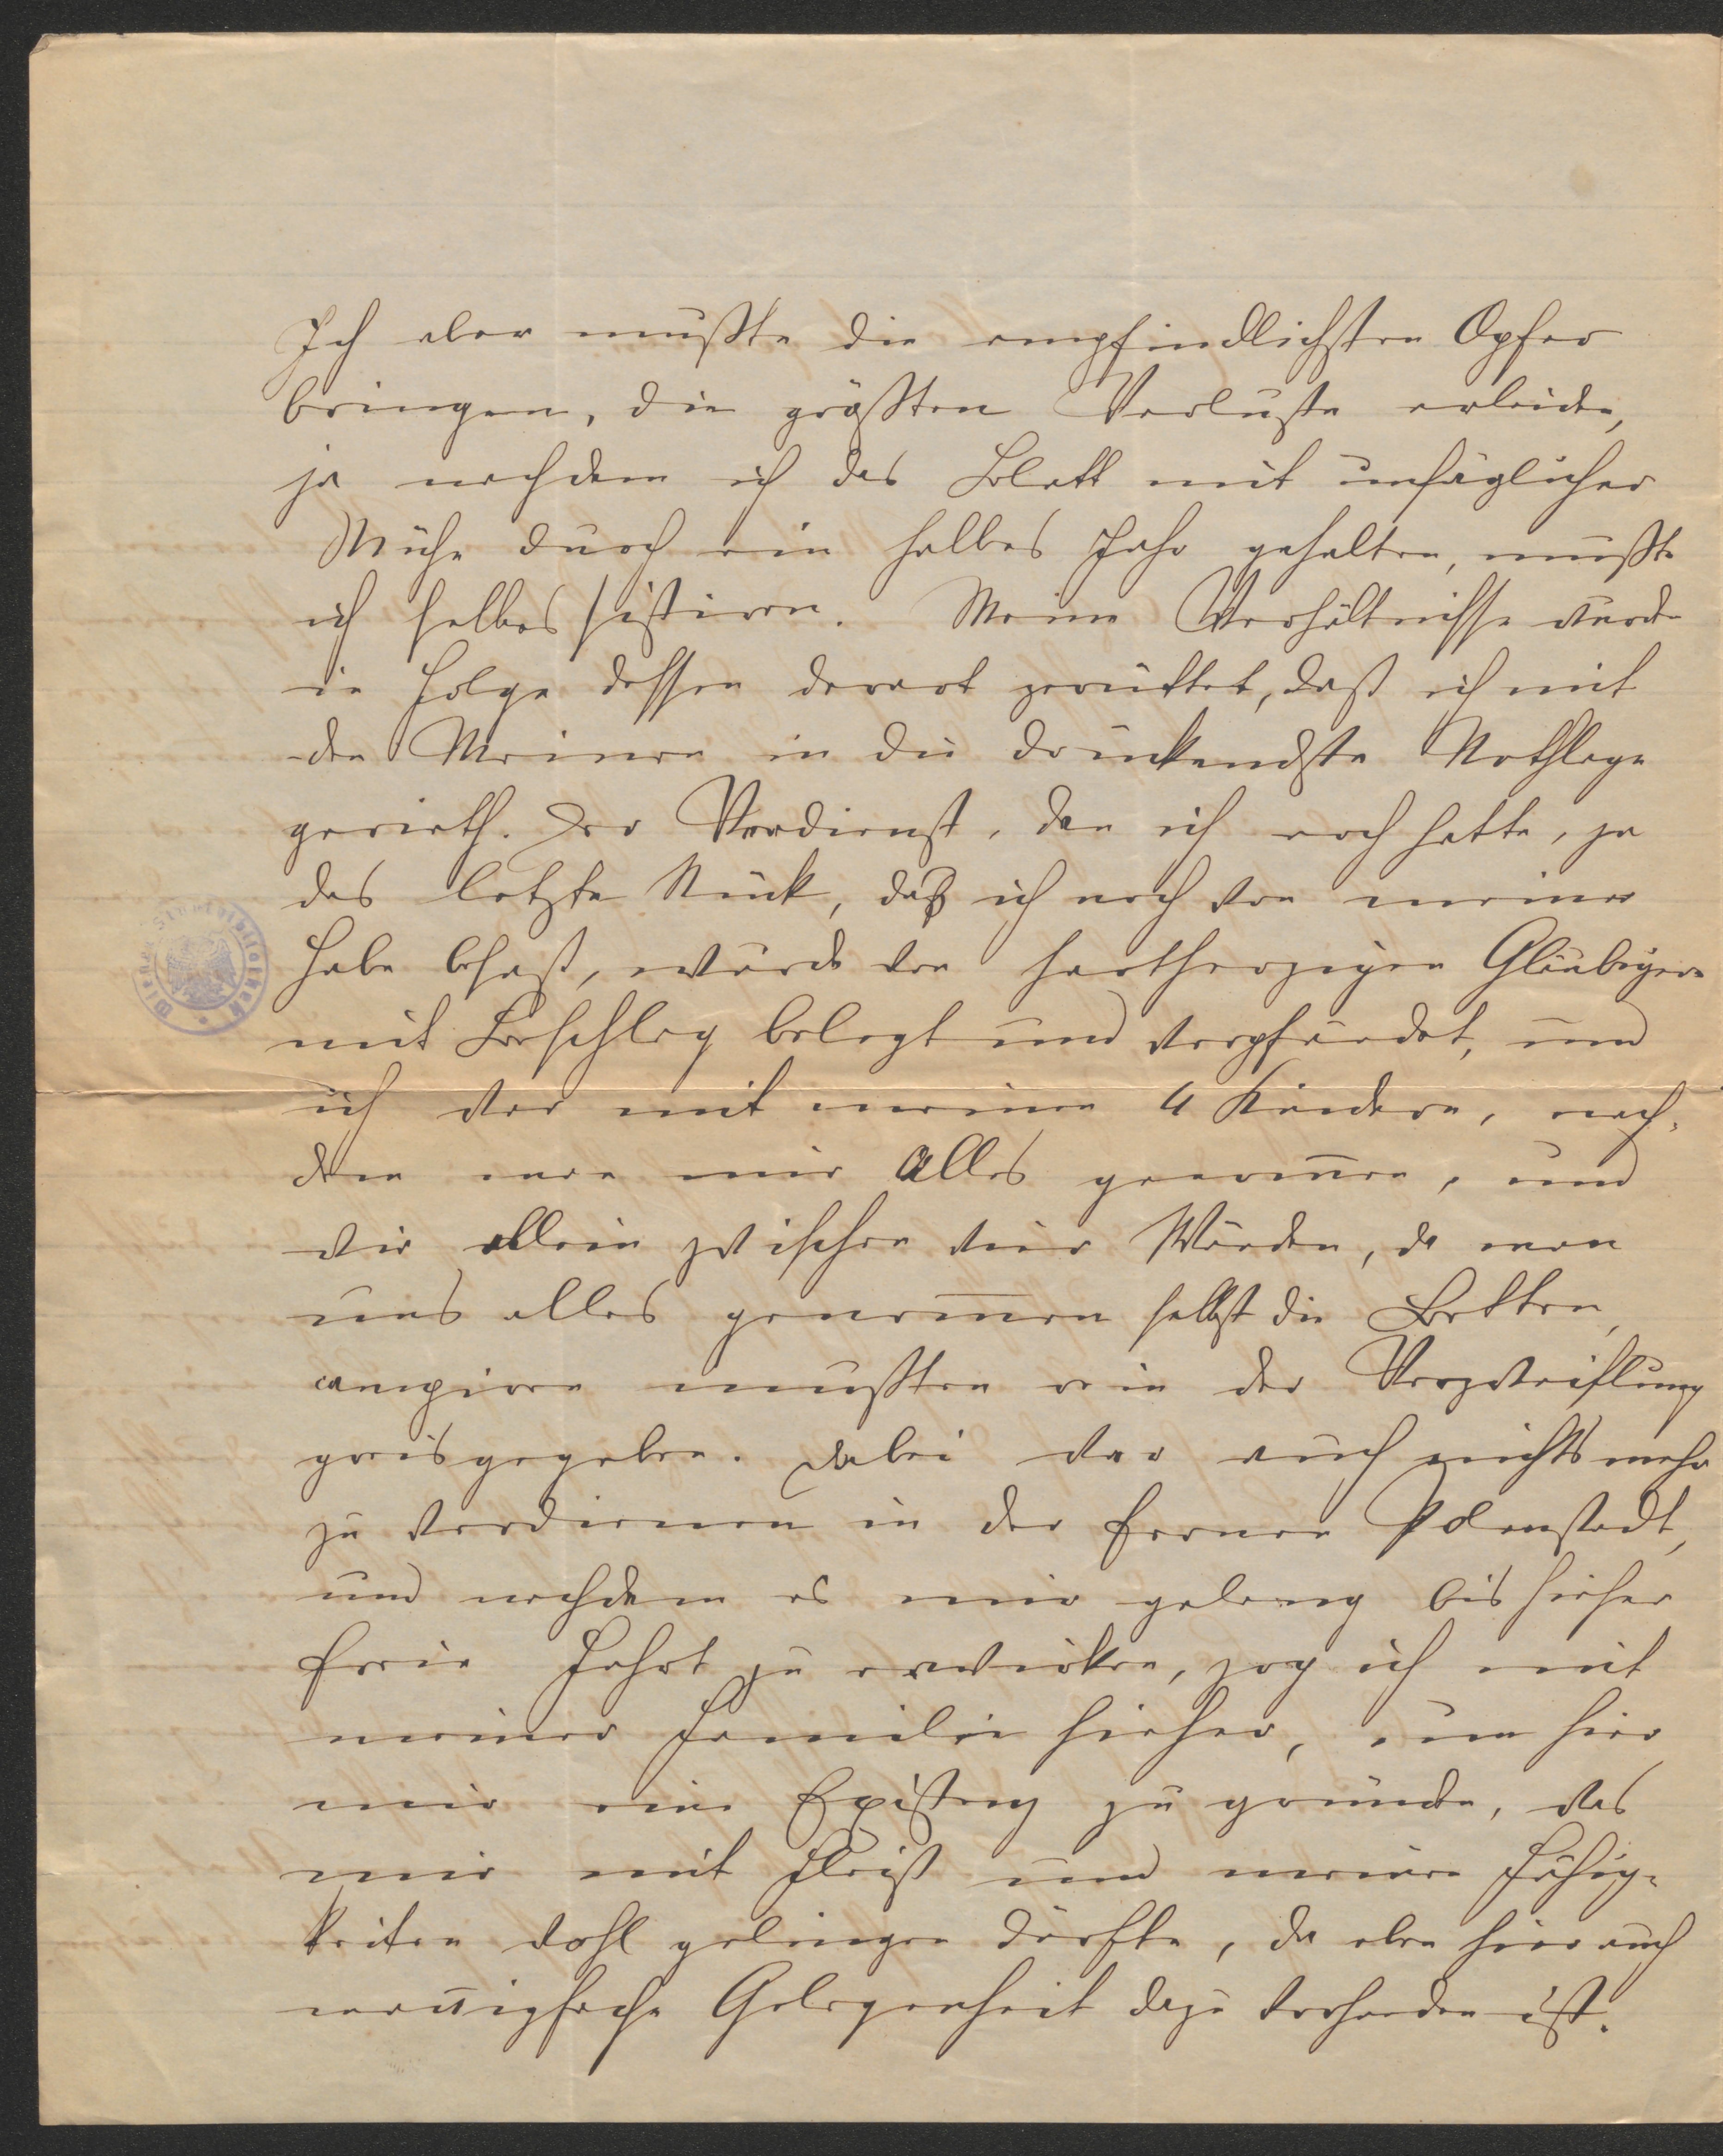 Ich aber mußte die empfindlichsten Opfer
bringen, die größten Verluste erleiden,
ja nachdem ich das Blatt mit unsäglicher
Mühe durch ein halbes Jahr gehalten, mußte
ich selbes sistiren. Meine Verhältnisse wurden
in Folge dessen derart zerrüttet, daß ich mit
den Meinen in die drückendste Nothlage
gerieth. Der Verdienst, den ich noch hatte, ja
das letzte Stück, daß ich noch von meiner
Habe besaß, wurde von hartherzigen Gläubigern
mit Beschlag belegt und verpfändet, und
ich war mit meinen 4 Kindern, nach-
dem man mir Alles genom̄en, und
wir allein zwischen vier Wänden, da man
uns alles genom̄en selbst die Betten,
campiren mußten rein der Verzweiflung
preisgegeben. Dabei war auch nichts mehr
zu verdienen in der fernen Polenstadt,
und nachdem es mir gelang bis hieher
freie Fahrt zu erwirken, zog ich mit
meiner Familie hieher, um hier
mir eine Existenz zu gründen, das
mir mit Fleiß und meinen Fähig-
keiten wohl gelingen dürfte, da eben hier auch
man̄igfache Gelegenheit dazu vorhanden ist.
Wiener Stadtbibliothek